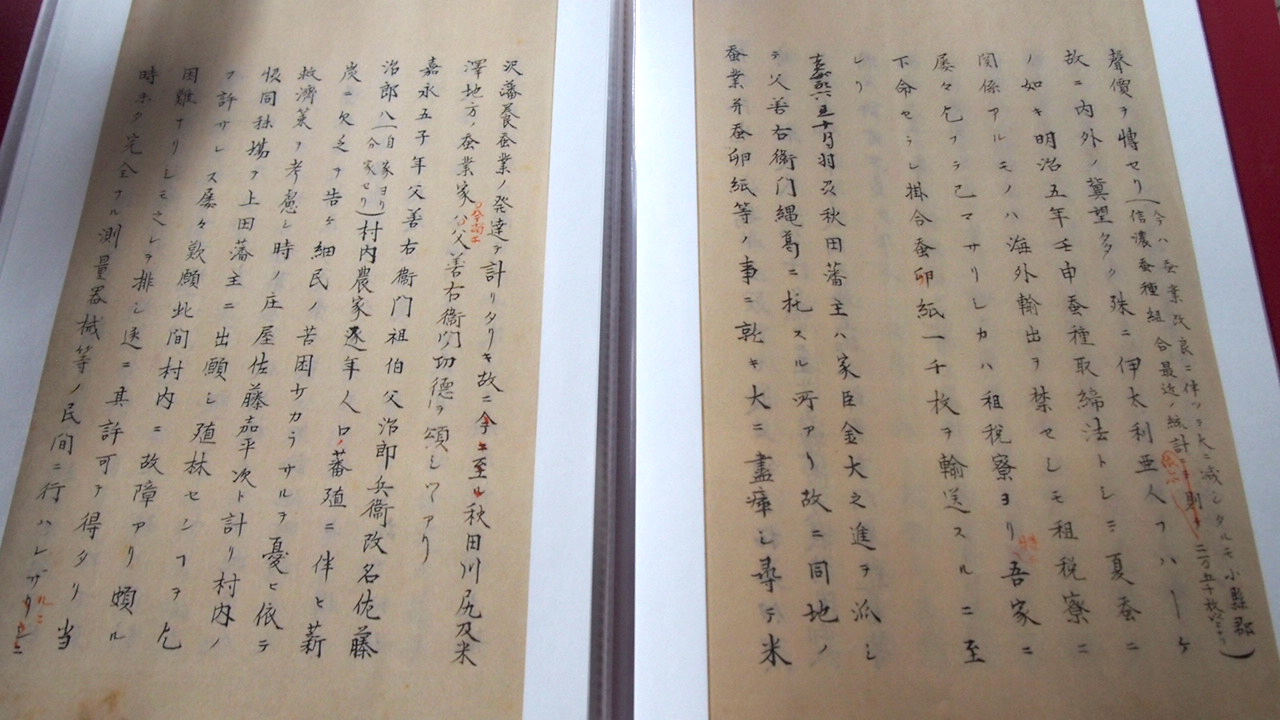 聲價ヲ博セリ(今ハ蚕業改良ニ伴ツテ大ニ減シタルモ小縣郡
信濃蚕種組合最近ノ統計ニ則チ二万五千枚ニナリ)
故ニ内外ノ冀望多ク殊ニ伊太利亜人フハーケ
ノ如キ明治五年壬申蚕種取締法トシテ夏蚕ニ
関係アルモノハ海外輸出ヲ禁セシモ租税寮ニ
屡々乞フテ已マサリシカハ租税寮ヨリ特ニ吾家ニ
下命セラレ掛合蚕卵紙一千枚ヲ輸送スルニ至
レリ
嘉永六丑十月羽刕秋田藩主ハ家臣金大之進ヲ派シ
テ父善右衛門縄葛ニ托スル所アリ故ニ同地ノ
蚕業并蚕卵紙等ノ事ニ乾キ大ニ盡瘁シ尋テ米
沢藩養蚕業ノ発達ヲ計リタリキ故ニ今ニ至ル秋田川尻及米
澤地方ノ蚕業家父善右衛門功徳ヲ頌シツヽアリ
嘉永五子年父善右衛門祖伯父治郎兵衛改名佐藤
治郎八(一自家ヨリ分家セリ)村内農家逐年人口ノ蕃殖ニ伴ヒ薪
炭ニ欠乏ヲ告ケ細民ノ苦困サカラサルヲ憂ヒ依テ
救濟策ヲ考慮シ時ノ庄屋佐藤嘉平次ト計リ村内ノ
悞同秣場ヲ上田藩主ニ出願シ殖林センコヲ乞
フ許サレス屡々歎願此間村内ニ故障アリ頗ル
困難ナリシモ之レヲ排シ遂ニ其許可ヲ得タリ当
時未タ完全ナル測量器械等ノ民間ニ行ハレザル